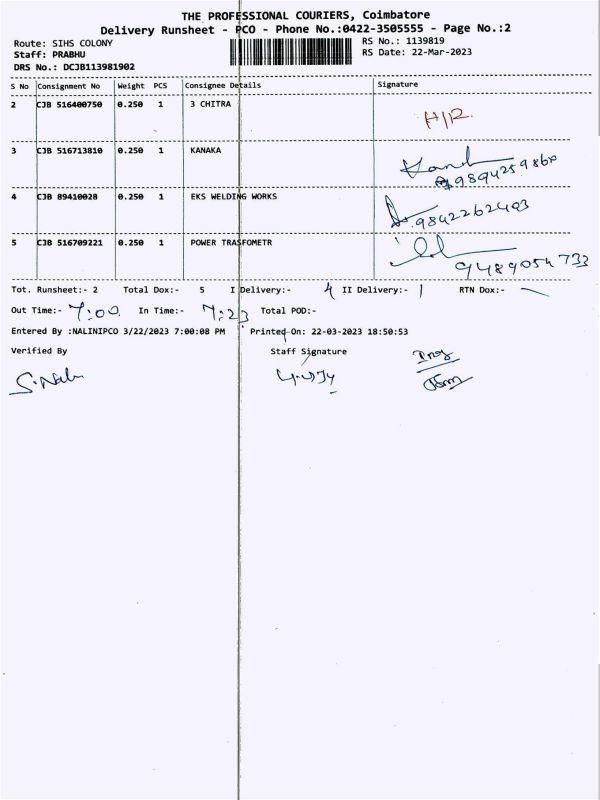 THE PROFESSIONAL COURIERS, Coimbatore
Delivery Runsheet - PCO - Phone No.:0422-3505555 - Page No.:2
Route: SIHS COLONY RS No.: 1139819
Staff: PRABHU RS Date: 22-Mar-2023
DRS No.: DCJB113981902
S No Consignment No Weight PCS Consignee Details Signature
2 CJB 516400750 0.250 1 3 CHITRA H/R
3 CJB 516713810 0.250 1 KANAKA
4 CJB 89410028 0.250 1 EKS WELDING WORKS 9842262403
5 CJB 516709221 0.250 1 POWER TRASFOMETR
9489054733
Tot. Runsheet:- 2 Total Dox:- 5 I Delivery:- 4 II Delivery:- 1 RTN Dox:-
Out Time:- 7:00 In Time:- 7:23 Total POD:-
Entered By :NALINIPCO 3/22/2023 7:00:08 PM Printed On: 22-03-2023 18:50:53
Verified By Staff Signature